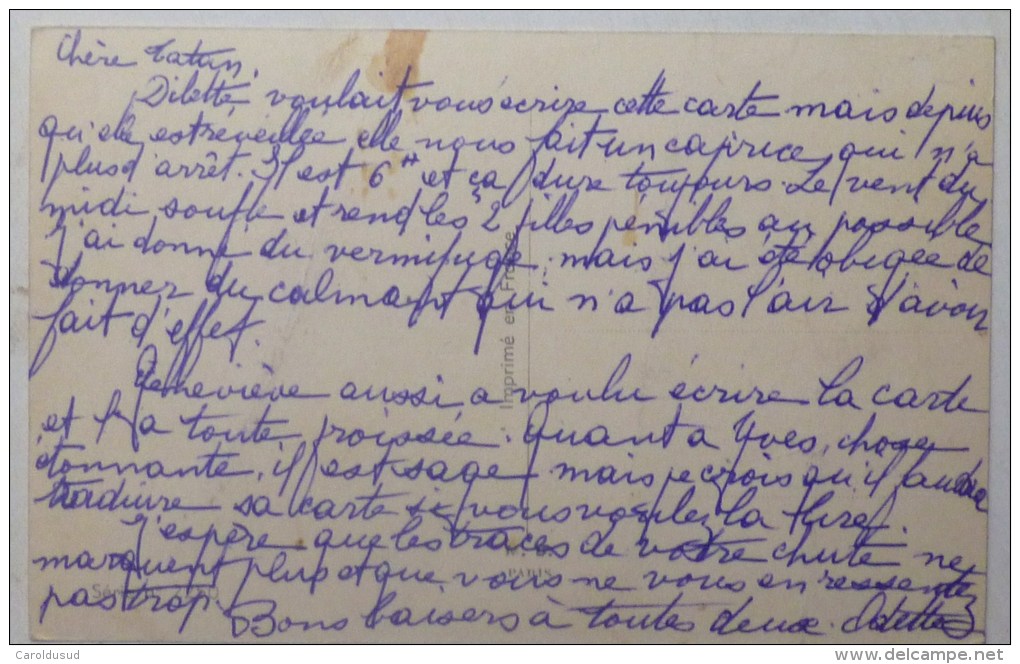 Chère Tatan,
Dilette voulait vous écrire cette carte mais depuis
qu'elle est réveillée elle nous fait un caprice qui n'a
plus d'arrêt. Il est 6H et ça dure toujours. Le vent du
midi soufle et rend les 2 filles pénibles au possible
J'ai donné du vermifuge, mais j'ai été obigée de
donner du calmant qui n'a pas l'air d'avoir
fait d'effet.
Geneviève aussi a voulu écrire la carte
et l'a toute froissée. Quant à Yves, chose
étonnante, il est sage mais je crois qu'il faudra
traduire sa carte si vous voulez la lire.
J'espère que les traces de votre chute ne
marquent plus et que vous ne vous en ressentez
pas trop.
Bons baisers à toutes deux. Odette
Imprimé en France
PARIS
Caroldusud
http://www.delcampe.net